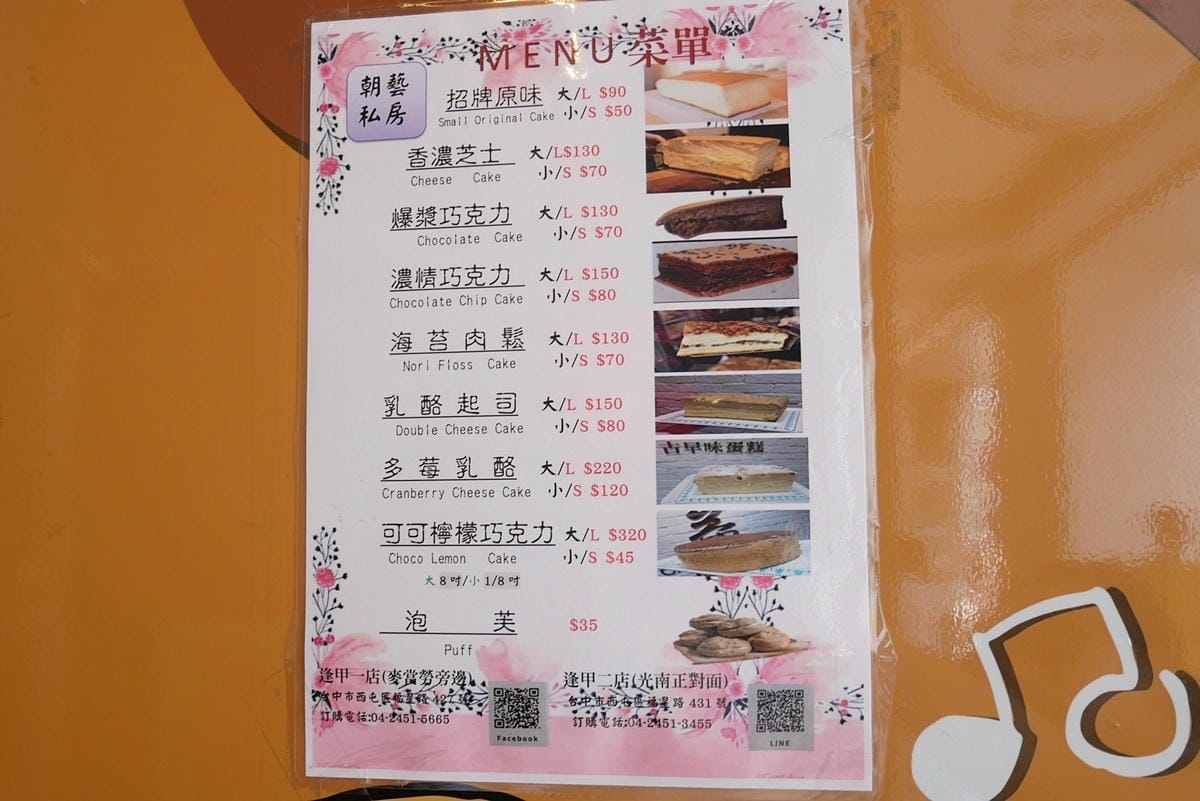 MENU菜單
朝藝
私房
招牌原味 大/L $90
Small Original Cake 小/S $50
香濃芝士 大/L$130
Cheese Cake 小/S $70
爆漿巧克力 大/L $130
Chocolate Cake 小/S $70
濃情巧克力 大/L $150
Chocolate Chip Cake 小/S $80
海苔肉鬆 大/L $130
Nori Floss Cake 小/S $70
乳酪起司 大/L $150
Double Cheese Cake 小/S $80
古早味蛋糕
多莓乳酪 大/L $220
Cranberry Cheese Cake 小/S $120
可可檸檬巧克力 大/L $320
Choco Lemon Cake 小/S $45
大 8 吋/小 1/8 吋
泡芙 $35
Puff
逢甲一店(麥當勞旁邊)
台中市西屯區福星路 427 號
訂購電話:04-2451-5665
Facebook
逢甲二店(光南正對面)
台中市西屯區福星路 431 號
訂購電話:04-2451-3455
LINE